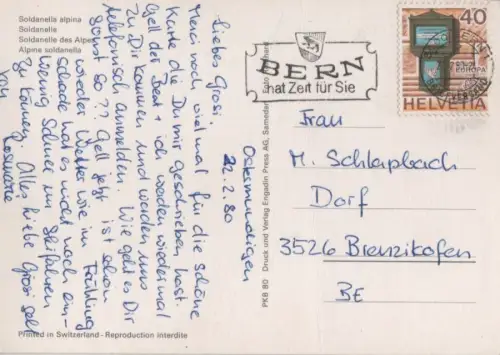 Soldanella alpina
Soldanelle
Soldanelle des Alpes
Alpine soldanella
Ostermundigen
22.2.80
Liebes Grosi.
Merci noch vielmal für die schöne
Karte die Du mir geschrieben hast.
Gell der Beat + ich werden wiedermal
zu Dir kommen und werden uns
telefonisch anmelden. Wie geht es Dir
sonst so ?? Gell jetzt ist schön
wieder Wetter wie im Frühling
schade hat es nicht noch ein-
wenig Schnee um Skifahren
zu können. Alles liebe Grosi gell
von Rosmarie
Printed in Switzerland - Reproduction interdite
PKB 80 Druck und Verlag Engadin Press AG, Samedan
BERN
hat Zeit für Sie
40
EUROPA
HELVETIA
Frau
M. Schlapbach
Dorf
3526 Brenzikofen
BE